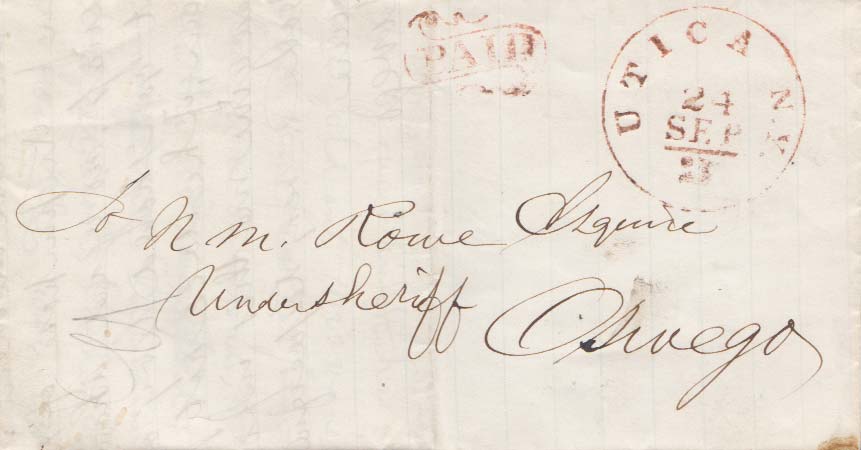 PAID
UTICA N.Y.
24
SEP
3
To N. M. Rowe Esquire
Undersheriff
Oswego